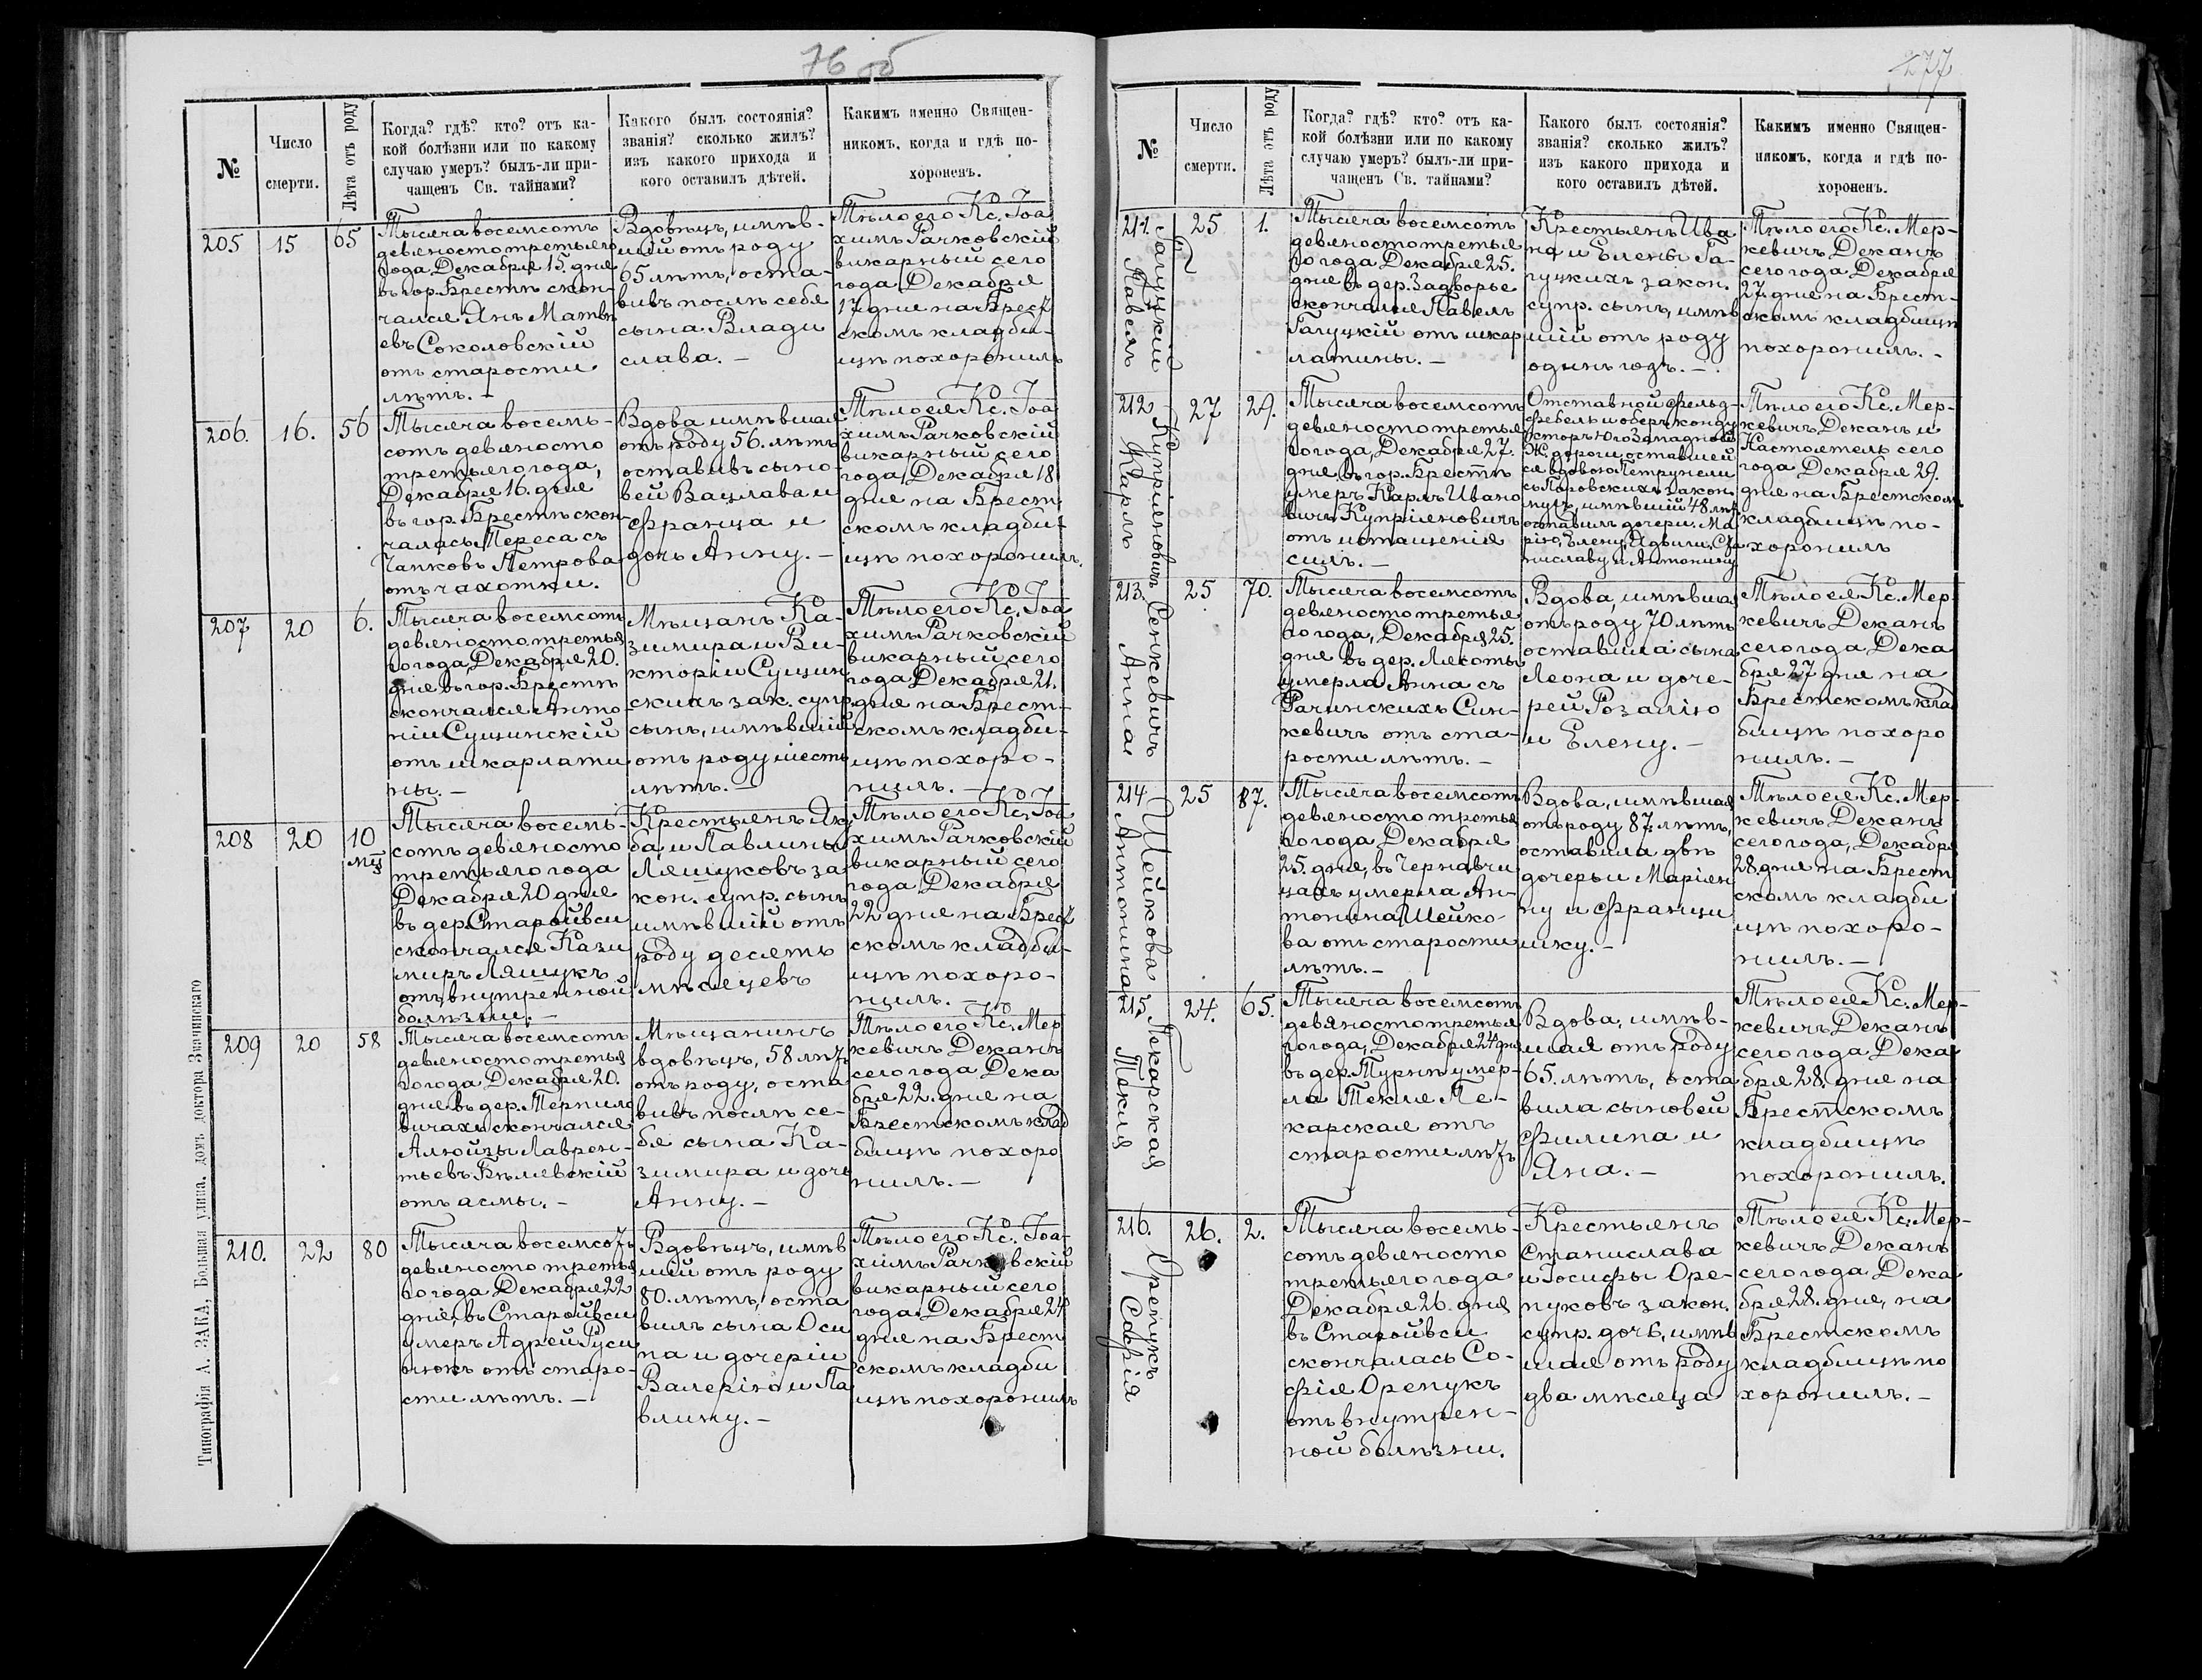 76 об
№
Число
смерти.
Лѣта отъ роду
Когда? гдѣ? кто? отъ ка-
кой болѣзни или по какому
случаю умеръ? былъ-ли при-
чащенъ Св. тайнами?
Какого былъ состоянія?
званія? сколько жилъ?
изъ какого прихода и
кого оставилъ дѣтей.
Какимъ именно Священ-
никомъ, когда и гдѣ по-
хороненъ.
205
15
65
Тысяча восемсотъ
девяностотретьяго
года Декабря 15. дня
въ гор. Брестѣ скон-
чался Янъ Матвѣ
евъ Соколовскій
отъ старости
лѣтъ. –
Вдовецъ, имѣв-
шій отъ роду
65 лѣтъ, оста-
вивъ послѣ себя
сына Влади
слава. –
Тѣло его Кс. Іоа
химъ Рачковскій
викарный сего
года Декабря
17 дня на Брест
скомъ кладби-
щѣ похоронилъ
206.
16.
56
Тысяча восемь-
сотъ девяносто
третьяго года,
Декабря 16. дня
въ гор. Брестѣ скон-
чалась Тереса съ
Чапковъ Петрова
отъ чахотки.
Вдова имѣвшая
отъ роду 56. лѣтъ
оставивъ сыно-
вей Вацлава и
Франца и
дочь Анну. –
Тѣло ея Кс. Іоа
химъ Рачковскій
викарный сего
года, Декабря 18
дня на Брест
скомъ кладби-
щѣ похоронилъ.
207
20
6.
Тысяча восемсотъ
девяностотретья
го года, Декабря 20.
дня въ гор. Брестѣ
скончался Анто
ній Сущинскій
отъ шкарлати
ны. –
Мѣщанъ Ка-
зимира и Ви-
кторіи Сущин
скихъ зак. супр.
сынъ, имѣвшій
отъ роду шесть
лѣтъ. –
Тѣло его Кс. Іоа
химъ Рачковскій
викарный сего
года, Декабря 21.
дня на Брест-
скомъ кладби-
щѣ похоро-
нилъ. –
208
20
10
мѣс
Тысяча восемь-
сотъ девяносто
третьяго года
Декабря 20 дня
въ дер. Старойвси
скончался Кази
миръ Ляшукъ
отъ внутренной
болѣзни. –
Крестьянъ Яку
ба и Павлины
Ляшуковъ за
кон. супр. сынъ
имѣвшій отъ
роду десять
мѣсяцевъ
Тѣло его Кс. Іоа
химъ Рачковскій
викарный сего
года, Декабря
22 дня на Брест
скомъ кладби-
щѣ похоро-
нилъ. –
209
20
58
Тысяча восемсотъ
девяностотретья
го года Декабря 20.
дня въ дер. Терпило
вичахъ скончался
Алюйзы Лаврен-
тьевъ Бѣлявскій
отъ асмы. –
Мѣщанинъ
вдовецъ, 58 лѣтъ
отъ роду, оста
вивъ послѣ се-
бя сына Ка-
зимира и дочь
Анну. –
Тѣло его Кс. Мер
кевичъ Деканъ
сего года Дека
бря 22. дня на
Брестскомъ клад
бищѣ похоро
нилъ. –
210.
22
80
Тысяча восемсотъ
девяносто третья
го года Декабря 22
дня, въ Старойвси
умеръ Адрей Руси
вюкъ отъ старо-
сти лѣтъ. –
Вдовецъ, имѣв
шій отъ роду
80. лѣтъ, оста
вилъ сына Оси
па и дочеріи
Валерію и Па
влину. –
Тѣло его Кс. Іоа-
химъ Рачковскій
викарный сего
года Декабря 24
дня на Брест
скомъ кладби
щѣ похоронилъ
Типографія А. ЗАКА, Большая улица, домъ доктора Значинскаго
277
№
Число
смерти.
Лѣта отъ роду
Когда? гдѣ? кто? отъ ка-
кой болѣзни или по какому
случаю умеръ? былъ-ли при-
чащенъ Св. тайнами?
Какого былъ состоянія?
званія? сколько жилъ?
изъ какого прихода и
кого оставилъ дѣтей.
Какимъ именно Священ-
никомъ, когда и гдѣ по-
хороненъ.
211.
Гагуцкій
Павелъ
25
1.
Тысяча восемсотъ
девяностотретья
го года Декабря 25.
дня въ дер. Задворье
скончался Павелъ
Гагуцкій отъ шкар
латины. –
Крестьянъ Ива
на и Елены Га-
гуцкихъ закон.
супр. сынъ, имѣв
шій отъ роду
одинъ годъ. –
Тѣло его Кс. Мер-
кевичъ Деканъ
сего года Декабря
27. дня на Брест-
скомъ кладбищѣ
похоронилъ. –
212
Купріяновичъ
Карлъ
27
29.
Тысяча восемсотъ
девяностотретья
го года, Декабря 27.
дня въ гор. Брестѣ
умеръ Карлъ Ивано
вичъ Купріяновичъ
отъ истощенія
силъ. –
Отставной фельд-
фебель и оберъ конду
кторъ Юго Западной
Ж. дороги оставшей
ся вдовою Петрунели
съ Паровскихъ закон.
мужъ, имѣвшій 48 лѣт.
оставилъ дочери: Ма
рію, Елену, Ядвигу, Ста
ниславу и Антонину
Тѣло его Кс. Мер-
кевичъ Деканъ и
Настоятель сего
года Декабря 29.
дня на Брестскомъ
кладбищѣ по-
хоронилъ
213.
Сенкевичъ
Анна
25
70.
Тысяча восемсотъ
девяностотретья
го года, Декабря 25.
дня въ дер. Лясоты
умерла Анна съ
Рачинскихъ Син-
кевичъ отъ ста-
рости лѣтъ. –
Вдова, имѣвшая
отъ роду 70 лѣтъ
оставила: сына
Леона и доче-
рей Розалію
и Елену. –
Тѣло ея Кс. Мер
кевичъ Деканъ
сего года Дека
бря 27 дня на
Брестскомъ клад
бищѣ похоро
нилъ. –
214
Шейкова
Антонина
25
87.
Тысяча восемсотъ
девяносто третья
го года Декабря
25. дня, въ Чернавчи
цахъ умерла Ан-
тонина Шейко-
ва отъ старости
лѣтъ. –
Вдова, имѣвшая
отъ роду 87. лѣтъ,
оставила двѣ
дочеры Маріян
ну и Франци
шку. –
Тѣло ея Кс. Мер-
кевичъ Деканъ
сего года, Декабр.
28. дня на Брест
скомъ кладби
щѣ похоро-
нилъ. –
215.
Пекарская
Текля
24.
65.
Тысяча восемсотъ
девяностотретья
го года, Декабря 24 дня
въ дер. Турнѣ умер-
ла Текля Пе-
карская отъ
старости лѣтъ
Вдова, имѣв-
шая отъ роду
65. лѣтъ, оста
вила сыновей
Филипа и
Яна. –
Тѣло ея Кс. Мер-
кевичъ Деканъ
сего года Дека
бря 28. дня на
Брестскомъ
кладбищѣ
похоронилъ.
216.
Орепукъ
Софія
26.
2.
Тысяча восемь-
сотъ девяносто
третьяго года
Декабря 26. дня
въ Старойвси
скончалась Со-
фія Орепукъ
отъ внутрен-
ной болѣзни.
Крестьянъ
Станислава
и Іосифы Оре-
пуковъ закон.
супр. дочь, имѣв
шая отъ роду
два мѣсяца
Тѣло ея Кс. Мер-
кевичъ Деканъ
сего года Дека
бря 28. дня, на
Брестскомъ
кладбищѣ по
хоронилъ. –